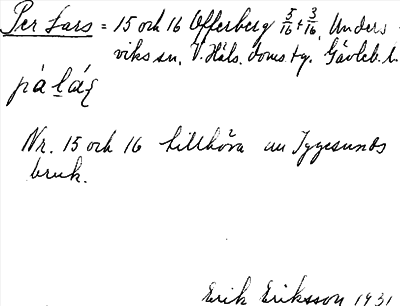 Per Lars = 15 och 16 Offerberg 5/16 + 3/16, Unders-
viks sn, V. Häls. doms+g. Gävleb. l.
pá lá
Nr. 15 och 16 tillhöra nu Iggesunds
bruk.
Erik Eriksson 1931